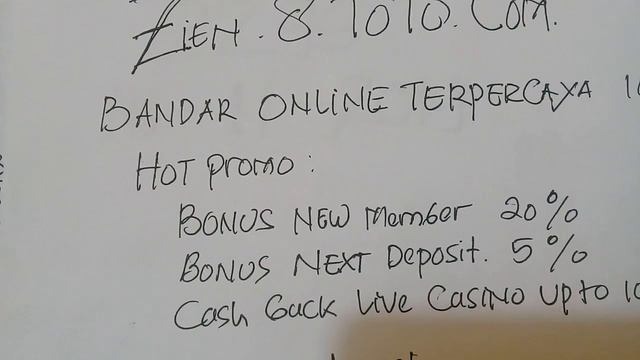 Zien.8.1010.Com.
BANDAR ONLINE TERPERCAYA
HOT Promo :
BONUS NEW Member 20%
BONUS NEXT Deposit. 5%
Cash Back Live Casino up to